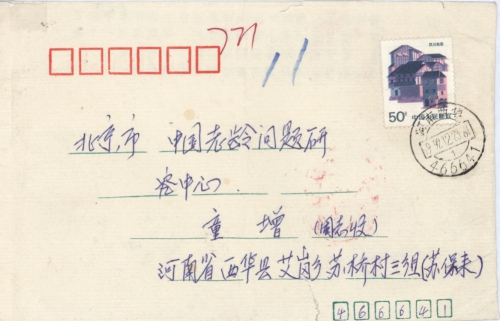 771
11
50分
中国人民邮政
466641
北京市 中国老龄问题研
究中心
童增 (同志收)
河南省西华县艾岗乡苏桥村三组(苏保来)
466641